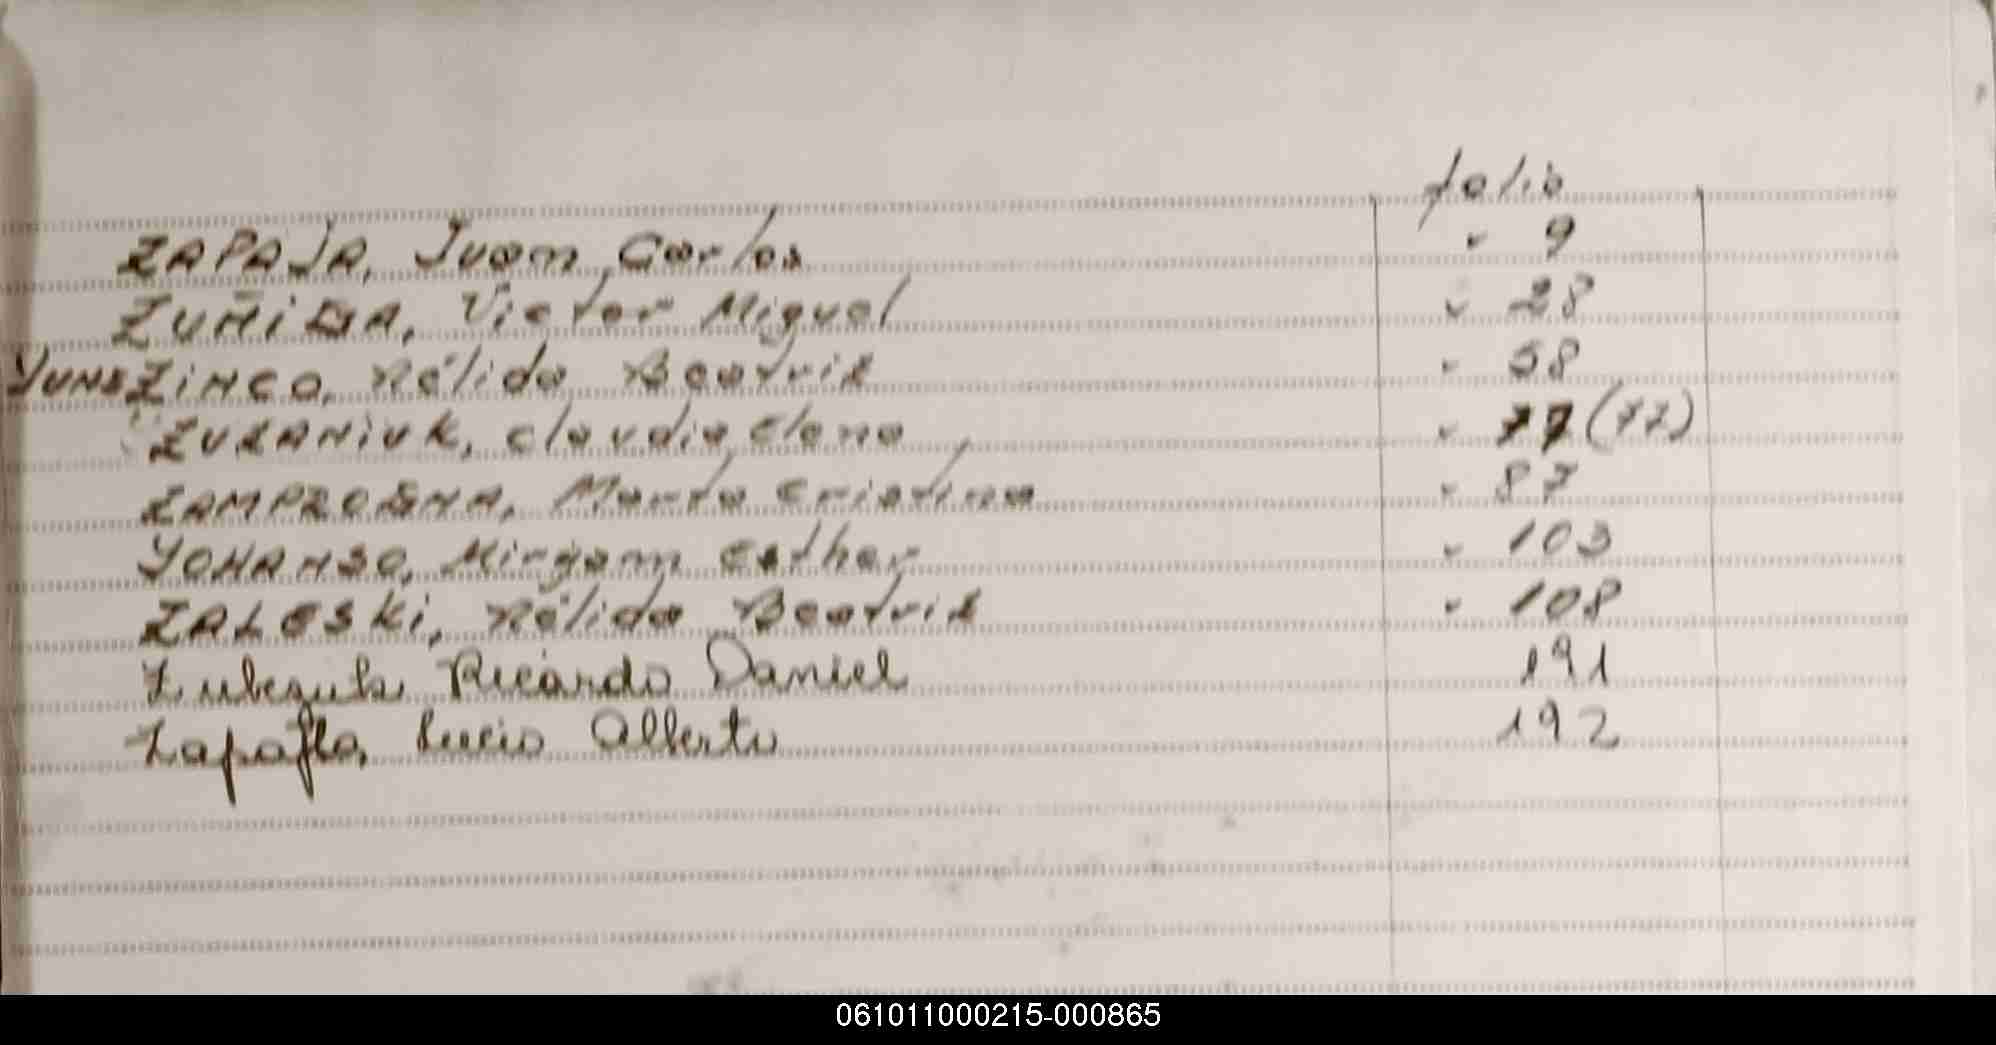 folio
ZAPAJA, Juan Carlos 9
ZUÑIGA, Victor Miguel 28
YUNSZINCO, Nélida Beatriz 58
ZUZANIUK, Claudia Elena 77 (72)
ZAMPROGNA, Marta Cristina 87
YOHANSO, Miryam Esther 103
ZALESKi, Nélida Beatriz 108
Ricardo Daniel 191
Lucio Alberto 192
061011000215-000865